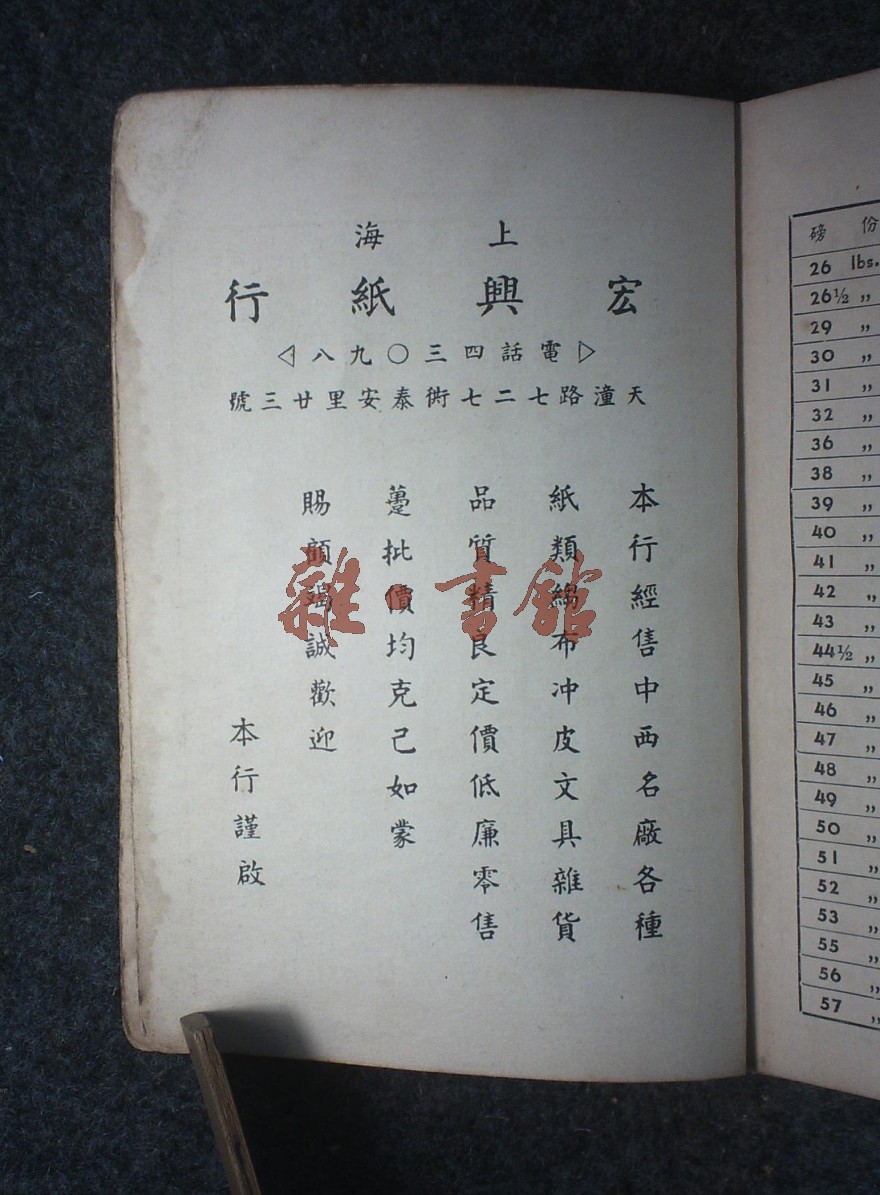 上海
宏興紙行
▷電話四三〇九八◁
天潼路七二七衖泰安里廿三號
本行經售中西名廠各種
紙類綿布冲皮文具雜貨
品質精良定價低廉零售
躉批價均克己如蒙
賜顧竭誠歡迎
本行謹啟
雜書館
磅份
26 lbs.
26½ 〃
29 〃
30 〃
31 〃
32 〃
36 〃
38 〃
39 〃
40 〃
41 〃
42 〃
43 〃
44½ 〃
45 〃
46 〃
47 〃
48 〃
49 〃
50 〃
51 〃
52 〃
53 〃
55 〃
56 〃
57 〃